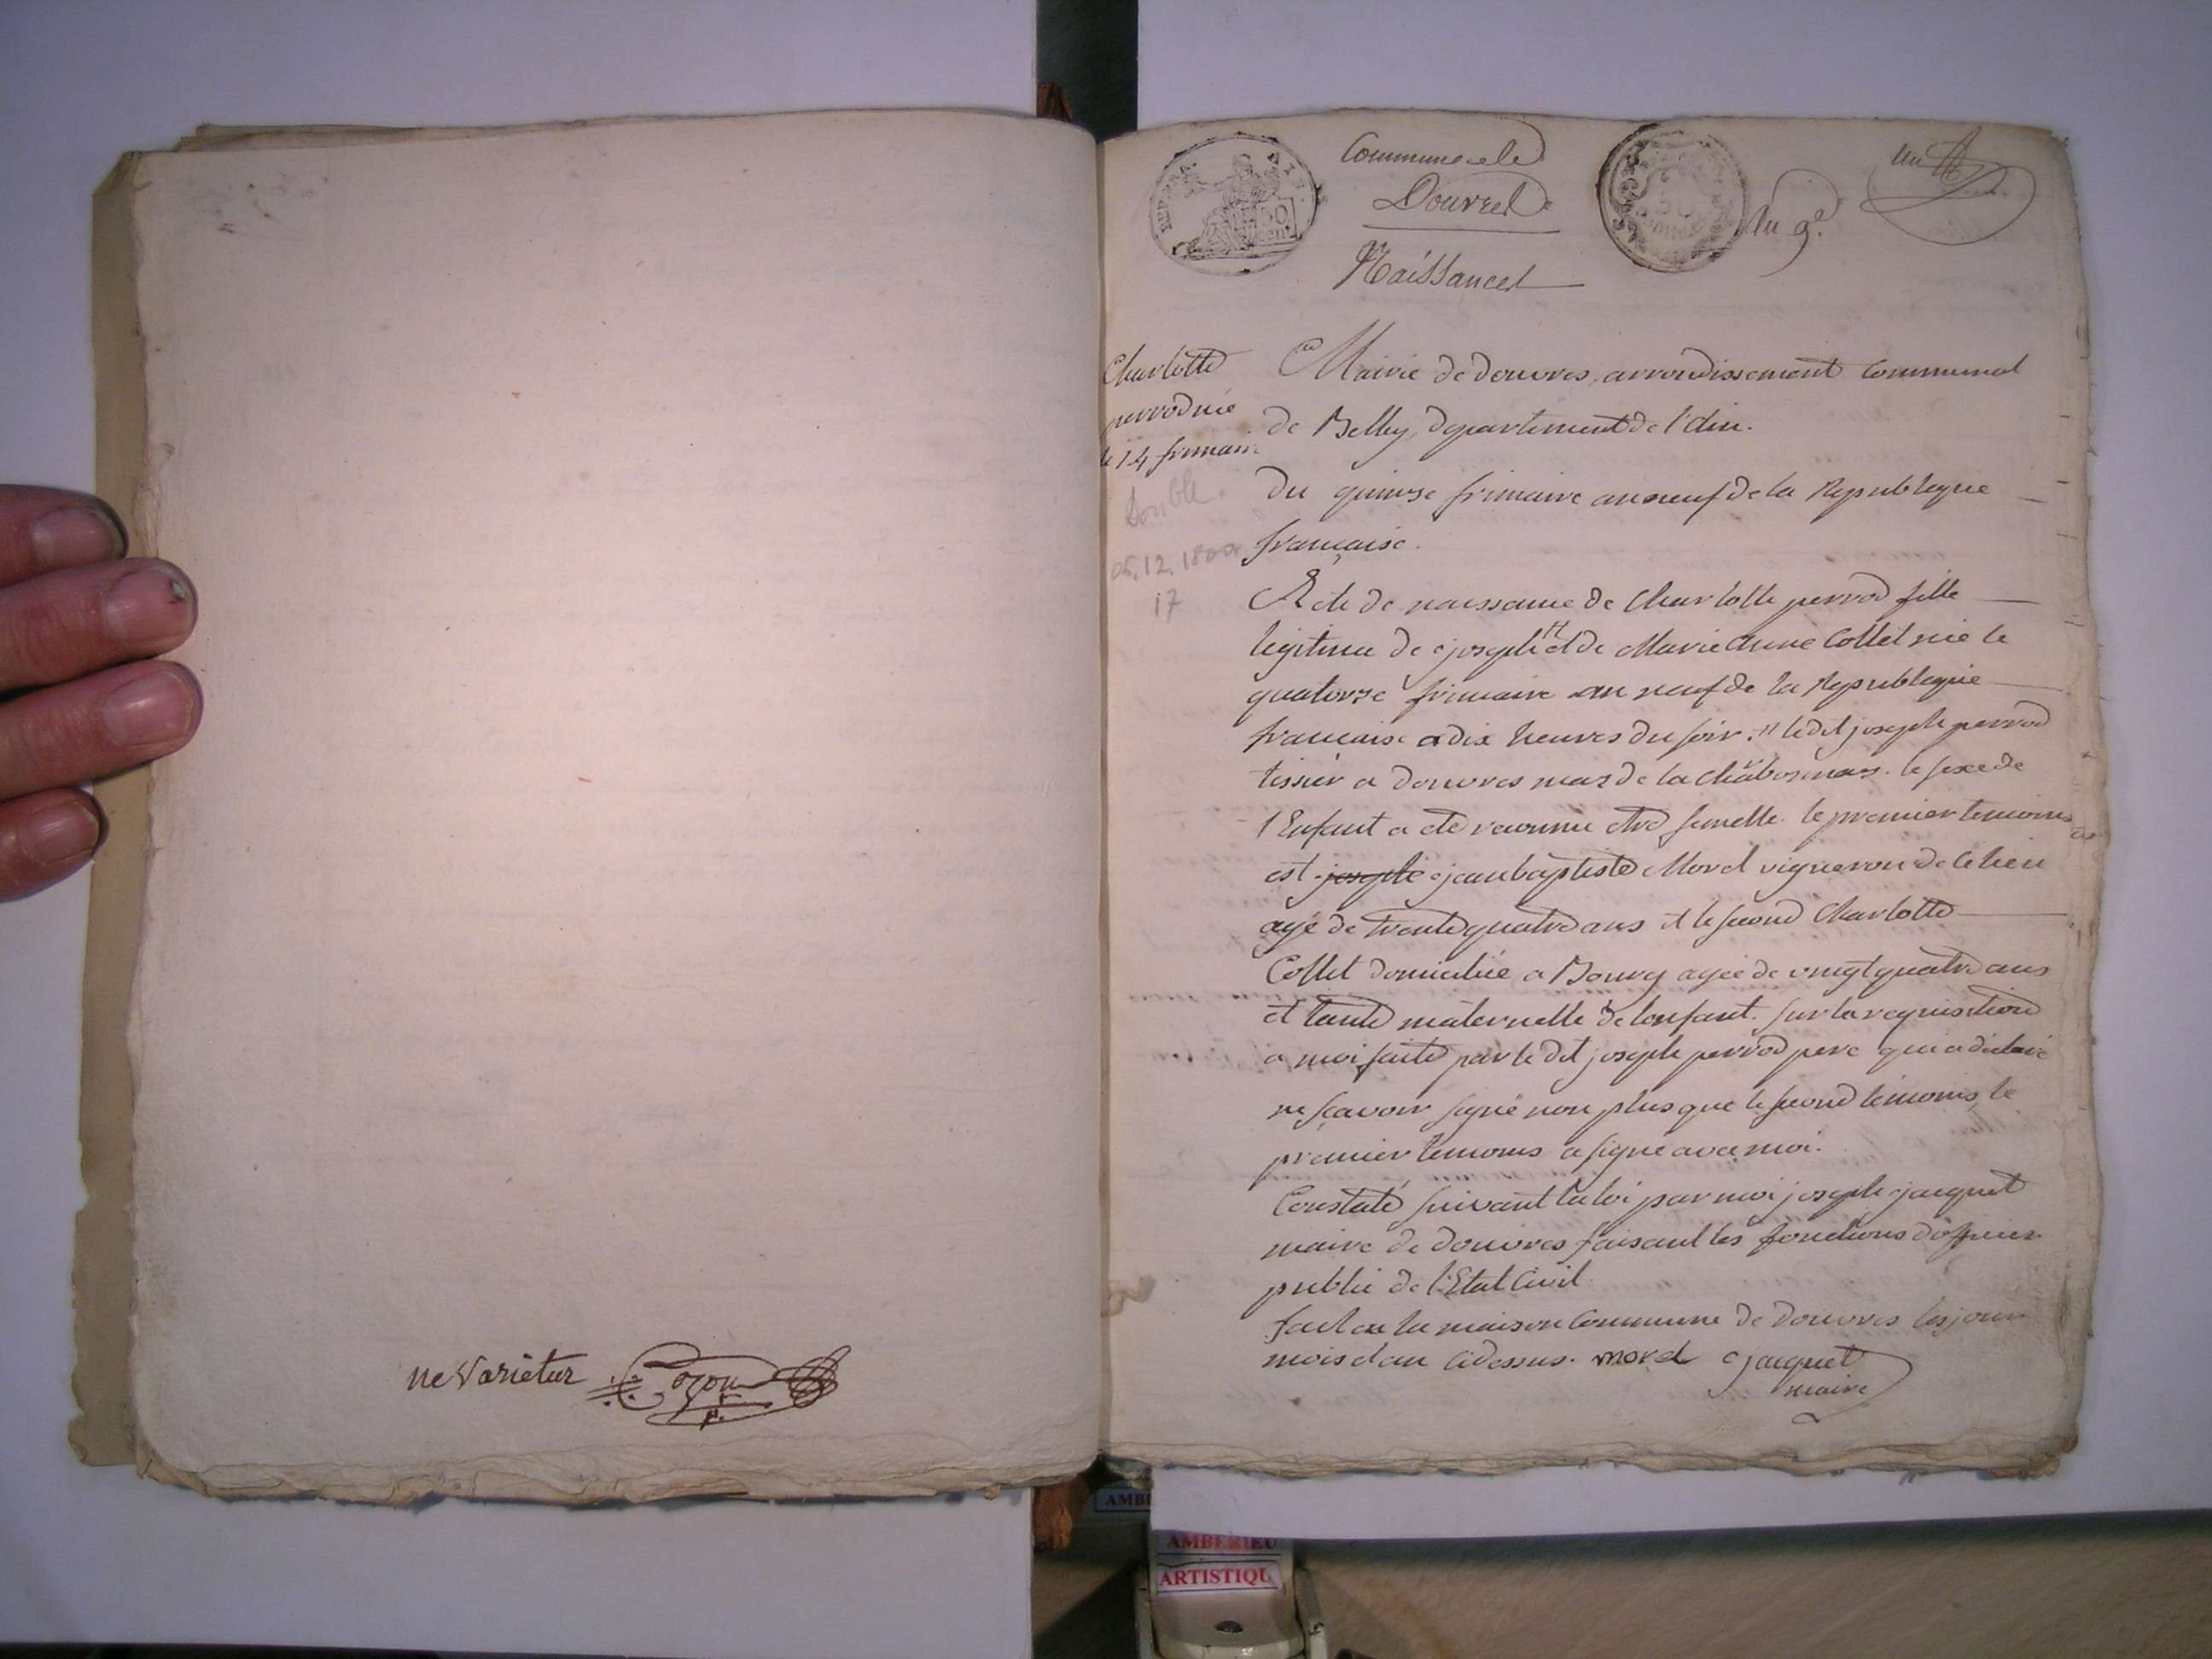 ne Varietur Cozon
REP. FRA.
50
cen.
Commune de
Douvres
Naissances
an 9.e
un
Charlotte
perrod née
le 14 frimaire
Double
05.12.1800
17
Mairie de douvres, arrondissement Communal
de Belley, departement de l'ain.
Du quinze frimaire an neuf de la Republique
française.
Acte de naissance de Charlotte perrod fille
legitime de joseph et de Marie Anne Collet née le
quatorze frimaire an neuf de la Republique
francaise a dix heures du soir. le dit joseph perrod
tissier a douvres mas de la le sexe de
l'Enfant a été reconnu etre femelle. le premier temoins
est joseph jean baptiste Morel vigneron de ce lieu
agé de trente quatre ans et le second Charlotte
Collet domiciliée a Bourg agée de vingt quatre ans
et tante maternelle de lenfant. sur la requisition
a moi faite par le dit joseph perrod pere qui a déclaré
ne sçavoir signé non plus que le second temoins, le
premier temoins a signé avec moi.
Constaté suivant la loi par moi joseph jacquet
maire de douvres faisant les fonctions d'officier
public de l'Etat Civil.
fait en la maison Commune de douvres les jour
mois et an cidessus. morel jacquet
maire
AMBE
AMBERIEU
ARTISTIQU